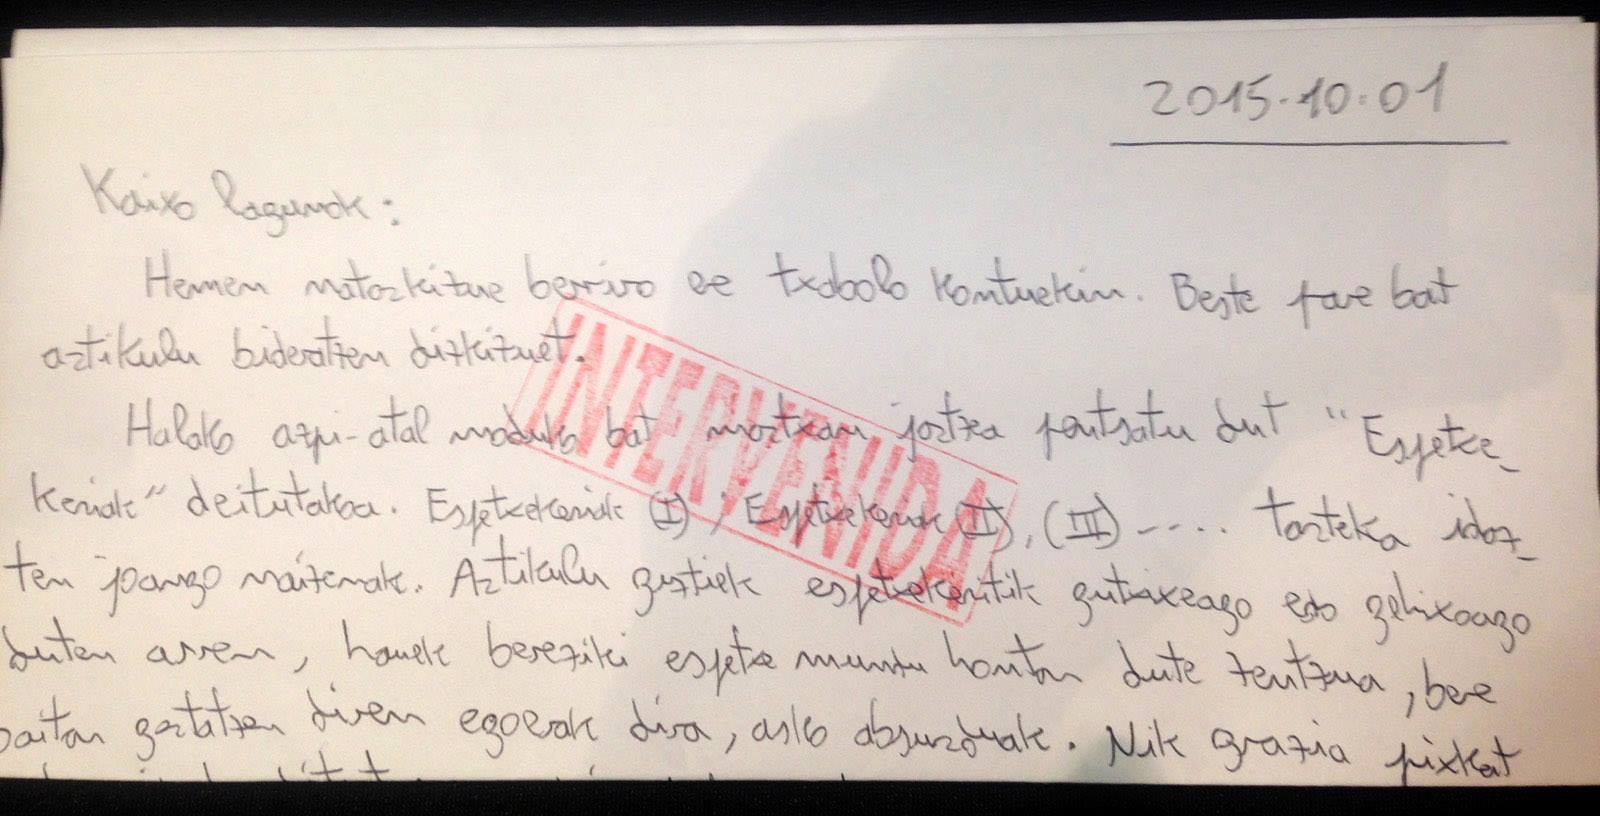 2015.10.01
Kaixo lagunok:
Hemen natorkizue berriro ee txabolo kontuekin. Beste pare bat
artikulu bideratzen dizkizuet.
INTERVENIDA
Halako azpi-atal moduko bat martxan jartzea pentsatu dut "Espetxe_
keriak" deitutakoa. Espetxekeriak (I); Espetxekeriak (II), (III) ----.. Tarteka idaz_
ten joango naizenak. Artikulu guztiek espetxekeritik gutxixeago edo gehixeago
duten arren, hauek bereziki espetxe mundu hontan dute zentzua, bere
baitan gertatzen diren egoerak dira, asko absurduak. Nik grazia pixkat